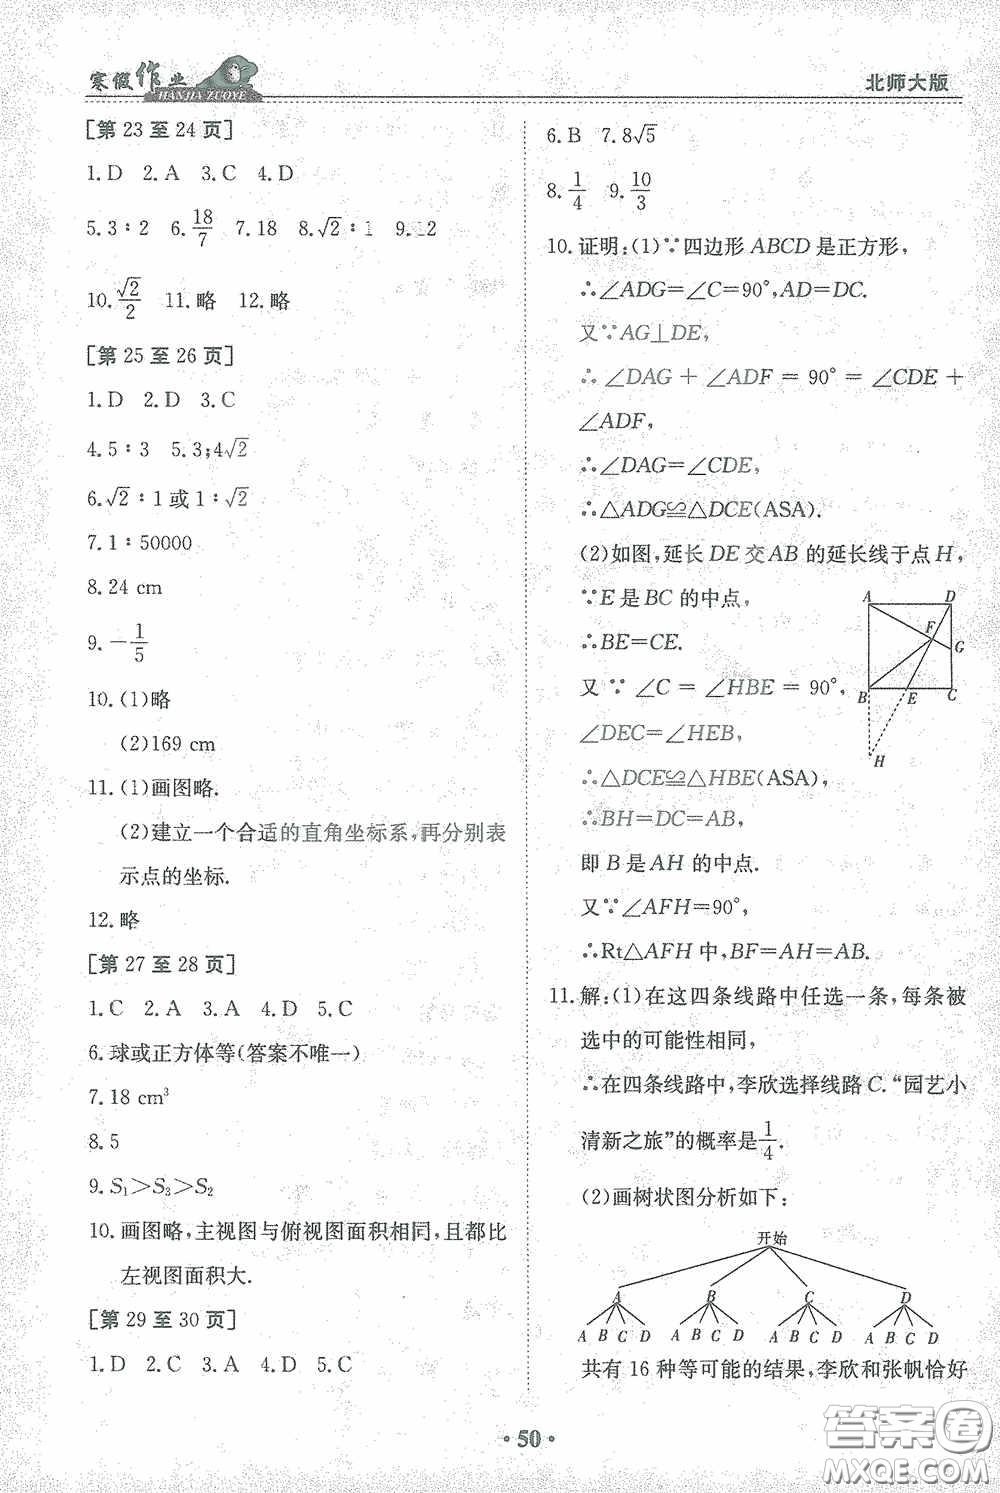 寒假作业
HANJIA ZUOYE
北师大版
[第 23 至 24 页]
1.D 2.A 3.C 4.D
5.3∶2 6.18/7 7.18 8.√2∶1 9.12
10.√2/2 11.略 12.略
[第 25 至 26 页]
1.D 2.D 3.C
4.5∶3 5.3;4√2
6.√2∶1或1∶√2
7.1∶50000
8.24 cm
9.-1/5
10.(1)略
(2)169 cm
11.(1)画图略.
(2)建立一个合适的直角坐标系,再分别表
示点的坐标.
12.略
[第 27 至 28 页]
1.C 2.A 3.A 4.D 5.C
6.球或正方体等(答案不唯一)
7.18 cm³
8.5
9.S₁>S₃>S₂
10.画图略,主视图与俯视图面积相同,且都比
左视图面积大.
[第 29 至 30 页]
1.D 2.C 3.A 4.D 5.C
6.B 7.8√5
8.1/4 9.10/3
10.证明:(1)∵四边形 ABCD 是正方形,
∴∠ADG=∠C=90°,AD=DC.
又∵AG⊥DE,
∴∠DAG + ∠ADF = 90° = ∠CDE +
∠ADF,
∴∠DAG=∠CDE,
∴△ADG≌△DCE(ASA).
(2)如图,延长 DE 交 AB 的延长线于点 H,
∵E 是 BC 的中点,
∴BE=CE.
又∵∠C = ∠HBE = 90°,
∠DEC=∠HEB,
∴△DCE≌△HBE(ASA),
∴BH=DC=AB,
即 B 是 AH 的中点.
又∵∠AFH=90°,
∴Rt△AFH 中,BF=AH=AB.
A D
F
G
B E C
H
11.解:(1)在这四条线路中任选一条,每条被
选中的可能性相同,
∴在四条线路中,李欣选择线路 C.“园艺小
清新之旅”的概率是1/4.
(2)画树状图分析如下:
开始
A B C D
A B C D A B C D A B C D A B C D
共有 16 种等可能的结果,李欣和张帆恰好
· 50 ·
答案卷
MXQE.COM